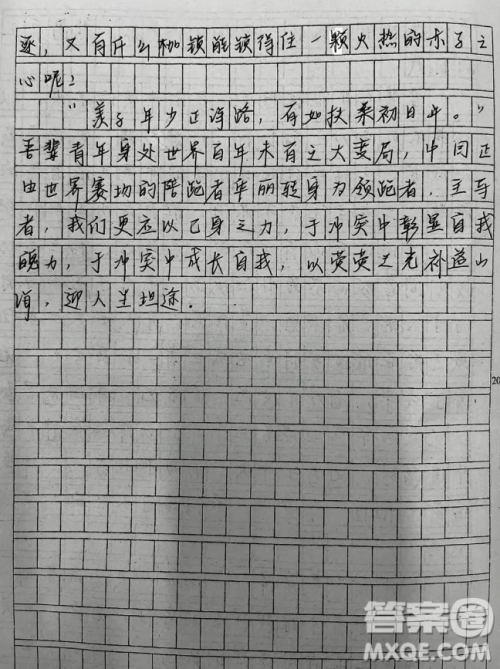 逐，又有什么枷锁能锁得住一颗火热的赤子之
心呢？
"羡子年少正得路，有如扶桑初日升。"
吾辈青年身处世界百年未有之大变局，中国正
由世界赛场的陪跑者华丽转身为领跑者，主导
者，我们更应以己身之力，于冲突中彰显自我
魄力，于冲突中成长自我，以荧荧之光补益山
河，迎人生坦途．
20
答案圈
MXQE.COM